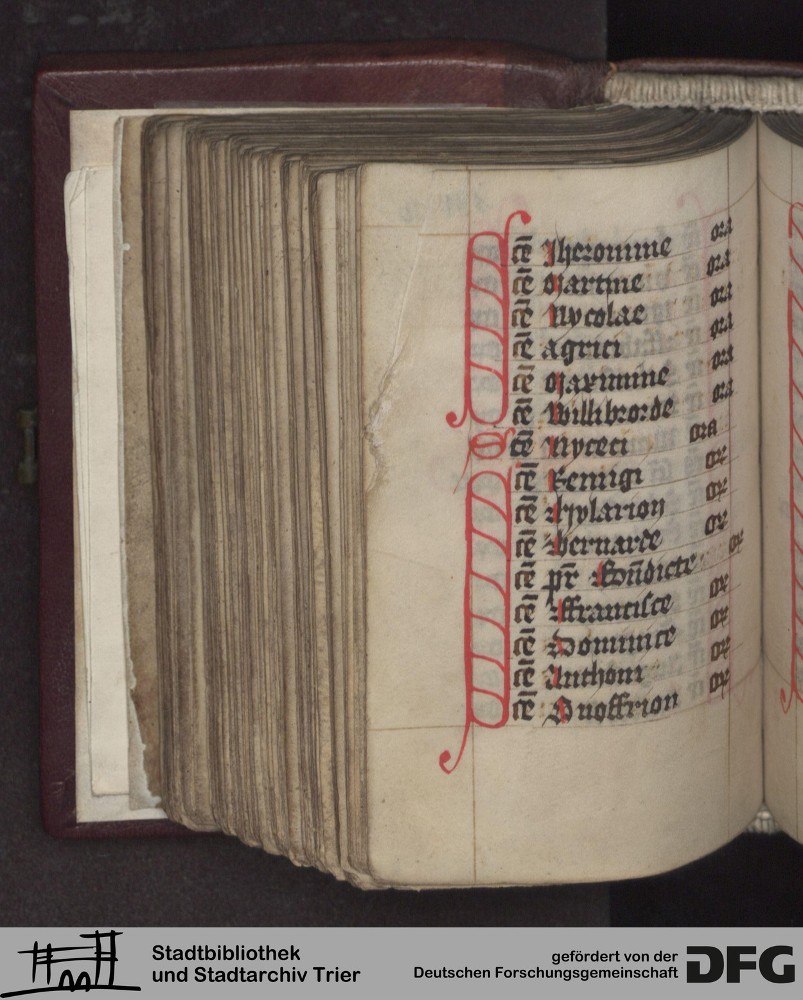 Scē Jheronime ora
Scē Martine ora
Scē Nycolae ora
Scē agrici ora
Scē Maximine ora
Scē Willibrorde ora
Scē Nyceci ora
Scē Remigi or
Scē Hylarion or
Scē Bernarde or
Scē pr̄ Bn̄dicte or
Scē Francisce or
Scē Dominice or
Scē Anthoni or
Scē Onoffrion or
Stadtbibliothek
und Stadtarchiv Trier
gefördert von der
Deutschen Forschungsgemeinschaft
DFG